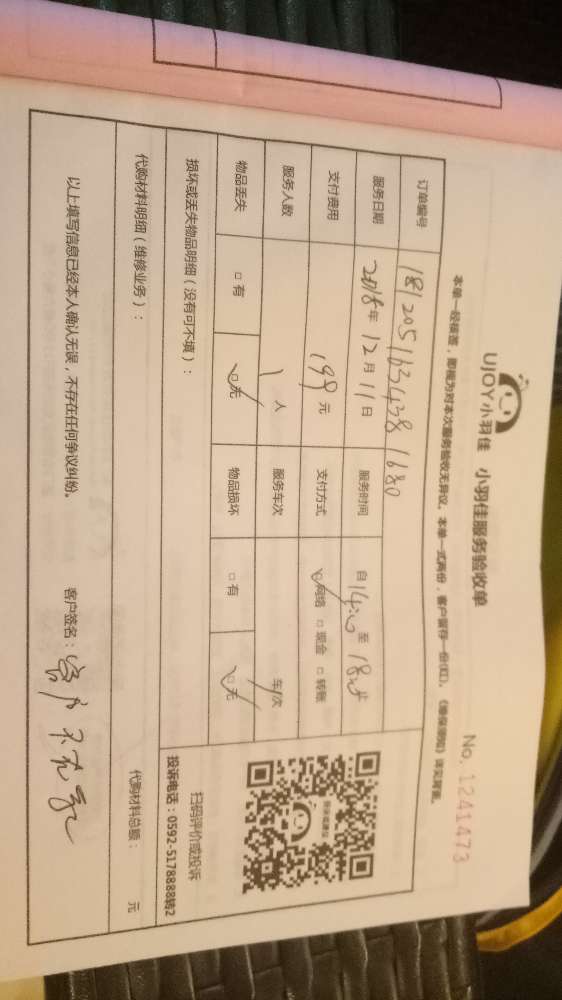 UJOY小羽佳 小羽佳服务验收单
No. 1241473
本单一经接签，即视为对本次服务验收无异议。本单一式两份，客户留存一份(红)。《维保须知》详见背面。
订单编号 181205163438 1680
服务日期 2018年 12月 11日 服务时间 自14:00至18:00
支付费用 198元 支付方式 □网络 □现金 □转账
服务人数 1人 服务车次 车/次
物品丢失 □有 □无 物品损坏 □有 □无
损坏或丢失物品明细（没有可不填）：
扫码评价或投诉
投诉电话：0592-5178888转2
代购材料明细（维修业务）：
代购材料总额： 元
以上填写信息已经本人确认无误，不存在任何争议纠纷。 客户签名：客户不在家